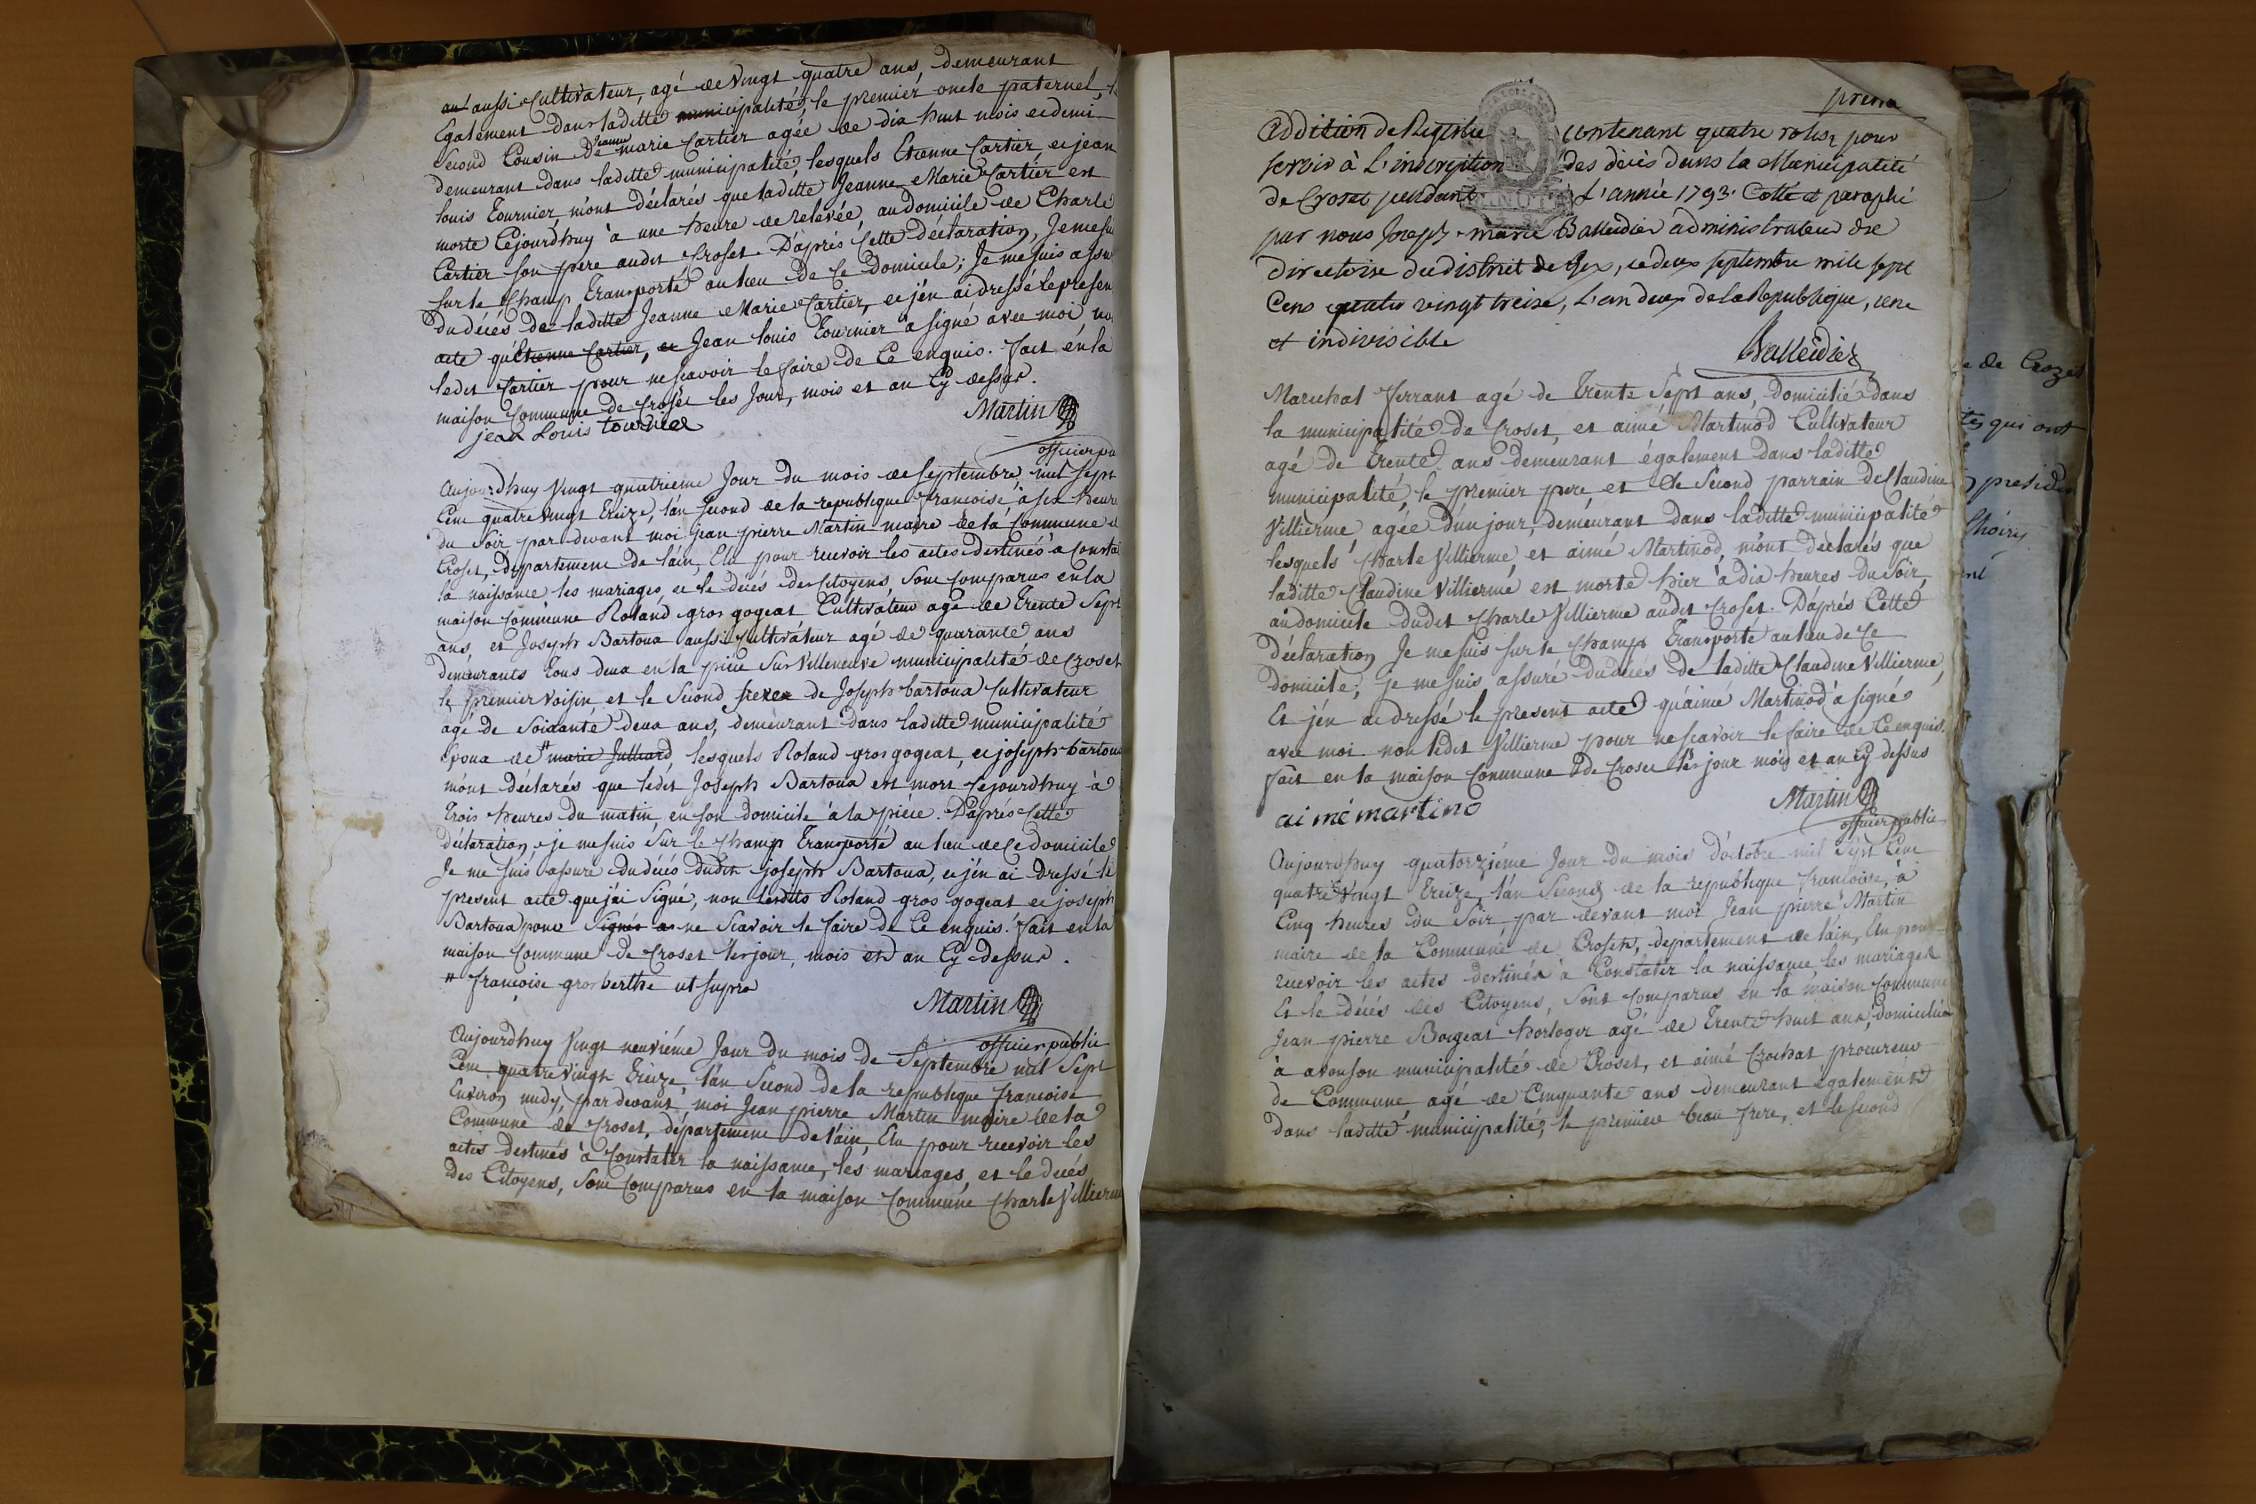 aussi Cultivateur, agé de vingt quatre ans, demeurant
Egalement dans laditte municipalité, le premier oncle paternel,
Second Cousin De Jeanne marie Cartier agée de dix huit mois et demi
demeurant dans laditte municipalité, lesquels Etienne Cartier et jean
louis Tournier, m'ont déclarés que laditte Jeanne Marie Cartier est
morte Cejourd'huy à une heure de relevée, au domicile de Charle
Cartier son pere audit Croset. D'aprés Cette déclaration, Je me su
sur le Champ Transporté au lieu de Ce Domicile; Je me suis assu
du décés de laditte Jeanne Marie Cartier, et j'en ai dressé le presen
acte qu'Etienne Cartier, et Jean louis Tournier a signé avec moi no
ledit Cartier pour ne scavoir le faire de Ce enquis. fait en la
maison Commune de Croset les Jour, mois et an Cy dessus.
jean Louis tournier
Martin
officier pu
Aujourd'huy vingt quatrieme Jour du mois de Septembre mil sept
Cent quatre vingt treize, l'an second de la republique francoise à six heure
du soir par devant moi jean pierre Martin maire de la Commune d
Croset, département de l'ain, Elu pour recevoir les actes destinés à Consta
la naissance les mariages, et le décés des Citoyens, Sont Comparus en la
maison Commune Roland gros gogeat Cultivateur agé de trente sept
ans, et Joseph Bartoua aussi Cultivateur agé de quarante ans
demeurants tous deux en la piece sur Villeneuve municipalité de Croset
le premier voisin et le Second frere de Joseph bartoua Cultivateur
agé de Soixante deux ans, demeurant dans laditte municipalité
Epoux de # marie Julliard, lesquels Roland gros gogeat, et joseph bartoua
m'ont déclarés que ledit Joseph Bartoua est mort Cejourd'huy à
trois heures du matin, en son domicile à la piéce. D'aprés Cette
déclaration, je me suis sur le Champ Transporté au lieu de Ce domicile
Je me suis assuré du décés dudit joseph Bartoua, et j'en ai dressé le
present acte que j'ai signé, non lesdits Roland gros gogeat et joseph
Bartoua pour Signés ne Scavoir le faire de Ce enquis. fait en la
maison Commune de Croset les jour, mois et an Cy dessus.
# françoise grosberthe ut supra
Martin
officier public
Aujourd'huy vingt neuviéme Jour du mois de Septembre mil Sept
Cent quatre vingt treize, l'an Second de la republique francoise
Environ midy, par devant moi Jean pierre Martin maire de la
Commune de Croset, departement de l'ain, Elu pour recevoir les
actes destinés à Constater la naissance, les mariages, et le décés
des Citoyens, Sont Comparus en la maison Commune Charle Villierme
premier
Addition de Registre contenant quatre roles, pour
servir à l'inscription des décès dans la Municipalité
de Croset pendant L'année 1793. Cotté et paraphé
par nous Joseph-marie Balleidier administrateur du
Directoire du district de Gex, ce deux septembre mile sept
Cens quatre vingt treise, L'an deux de la République, une
et indivisible
Balleidier
Marechal ferrant agé de trente Sept ans, Domicilié dans
la municipalité de Croset, et aimé Martinod Cultivateur
agé de trente ans demeurant également dans laditte
municipalité, le premier pere, et le Second parrain de Claudine
Villierme agée d'un jour, demeurant dans laditte municipalité
lesquels Charle Villierme, et aimé Martinod, m'ont déclarés que
laditte Claudine Villierme est morte hier à dix heures du Soir,
au domicile dudit Charle Villierme audit Croset. D'aprés Cette
Déclaration Je me suis sur le Champ Transporté au lieu de Ce
Domicile; je me suis assuré du décés de laditte Claudine Villierme,
Et j'en ai dressé le present acte qu'aimé Martinod à signé
avec moi non ledit Villierme pour ne scavoir le faire de Ce enquis.
fait en la maison Commune de Croset les jour mois et an Cy dessus
ai mé martino
Martin
officier public
Aujourd'huy quatorziéme Jour du mois d'octobre mil Sept Cent
quatre vingt treize, l'an Second de la republique francoise, à
Cinq heures du Soir par devant moi Jean pierre Martin
maire de la Commune de Croset, departement de l'ain, Elu pour
recevoir les actes destinés à Constater la naissance, les mariages
Et le décés des Citoyens, Sont Comparus en la maison Commune
Jean pierre Borgeat horloger agé de trente huit ans, domicilié
à avouson municipalité de Croset, et aimé Crochat procureur
de Commune, agé de Cinquante ans demeurant également
dans laditte municipalité, le premier beau frere, et le second
de Crozet
qui ont
presiden
Thoiry